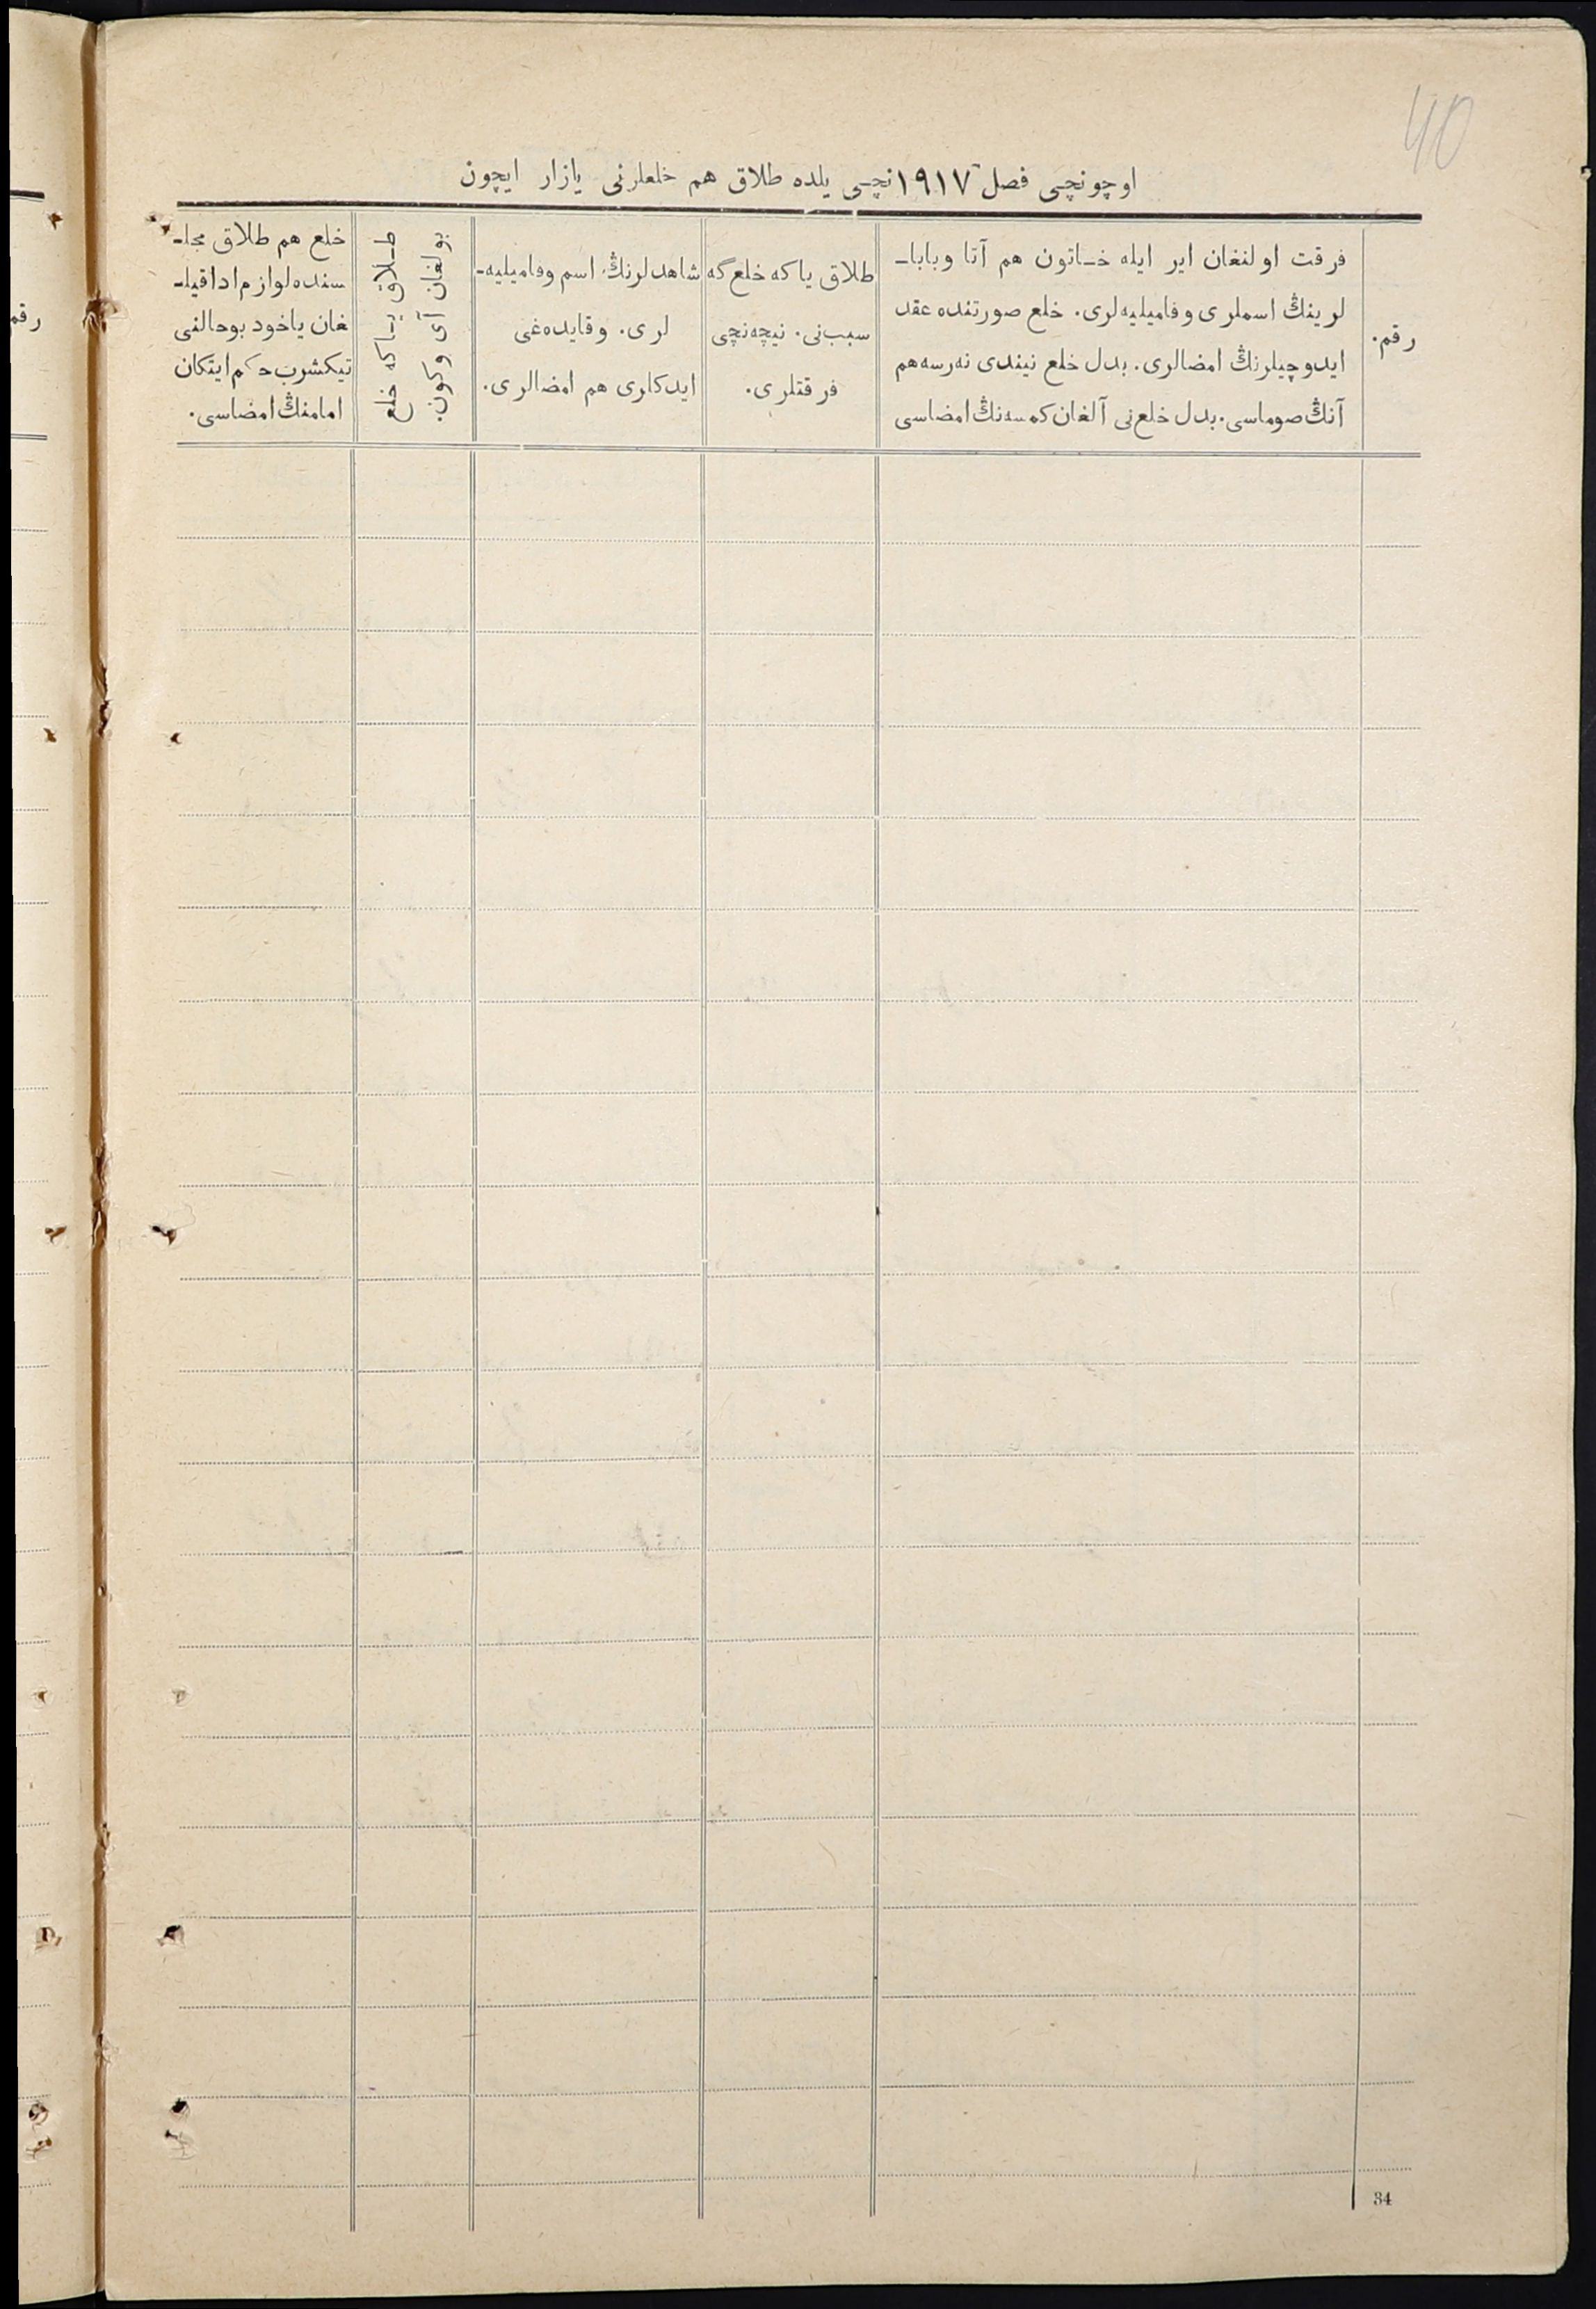 40
اوچونچی فصل ١٩١٧نچی یلده طلاق هم خلعلرنی یازار ایچون
رقم.
فرقت اولنغان ایر ایله خـاتون هم آتا وبابا۔
لرینڭ اسملری وفامیلیه‌لری. خلع صورتنده عقد
ایدوچیلرنڭ امضالری. بدل خلع نیندی نەرسه هم
آنڭ صوماسی. بدل خلع‌نی آلغان کمسه‌نڭ امضاسی
طلاق یاکه خلع‌گه
سبب‌نی. نیچه‌نچی
فرقتلری.
شاهدلرنڭ اسم وفامیلیه۔
لری. وقایده‌غی
ایدکلری هم امضالری.
طـلاق یـاکه خلع
بولغان آی وکون.
خلع هم طلاق مجلـ
سنده لوازم ادا قیلـ
غان یاخود بوحالنی
تیکشرب حکم ایتکان
امامنڭ امضاسی.
رقم
34